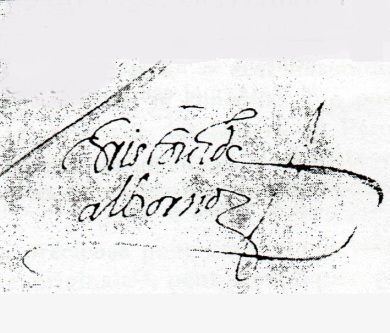 Cristoual de
albornoz